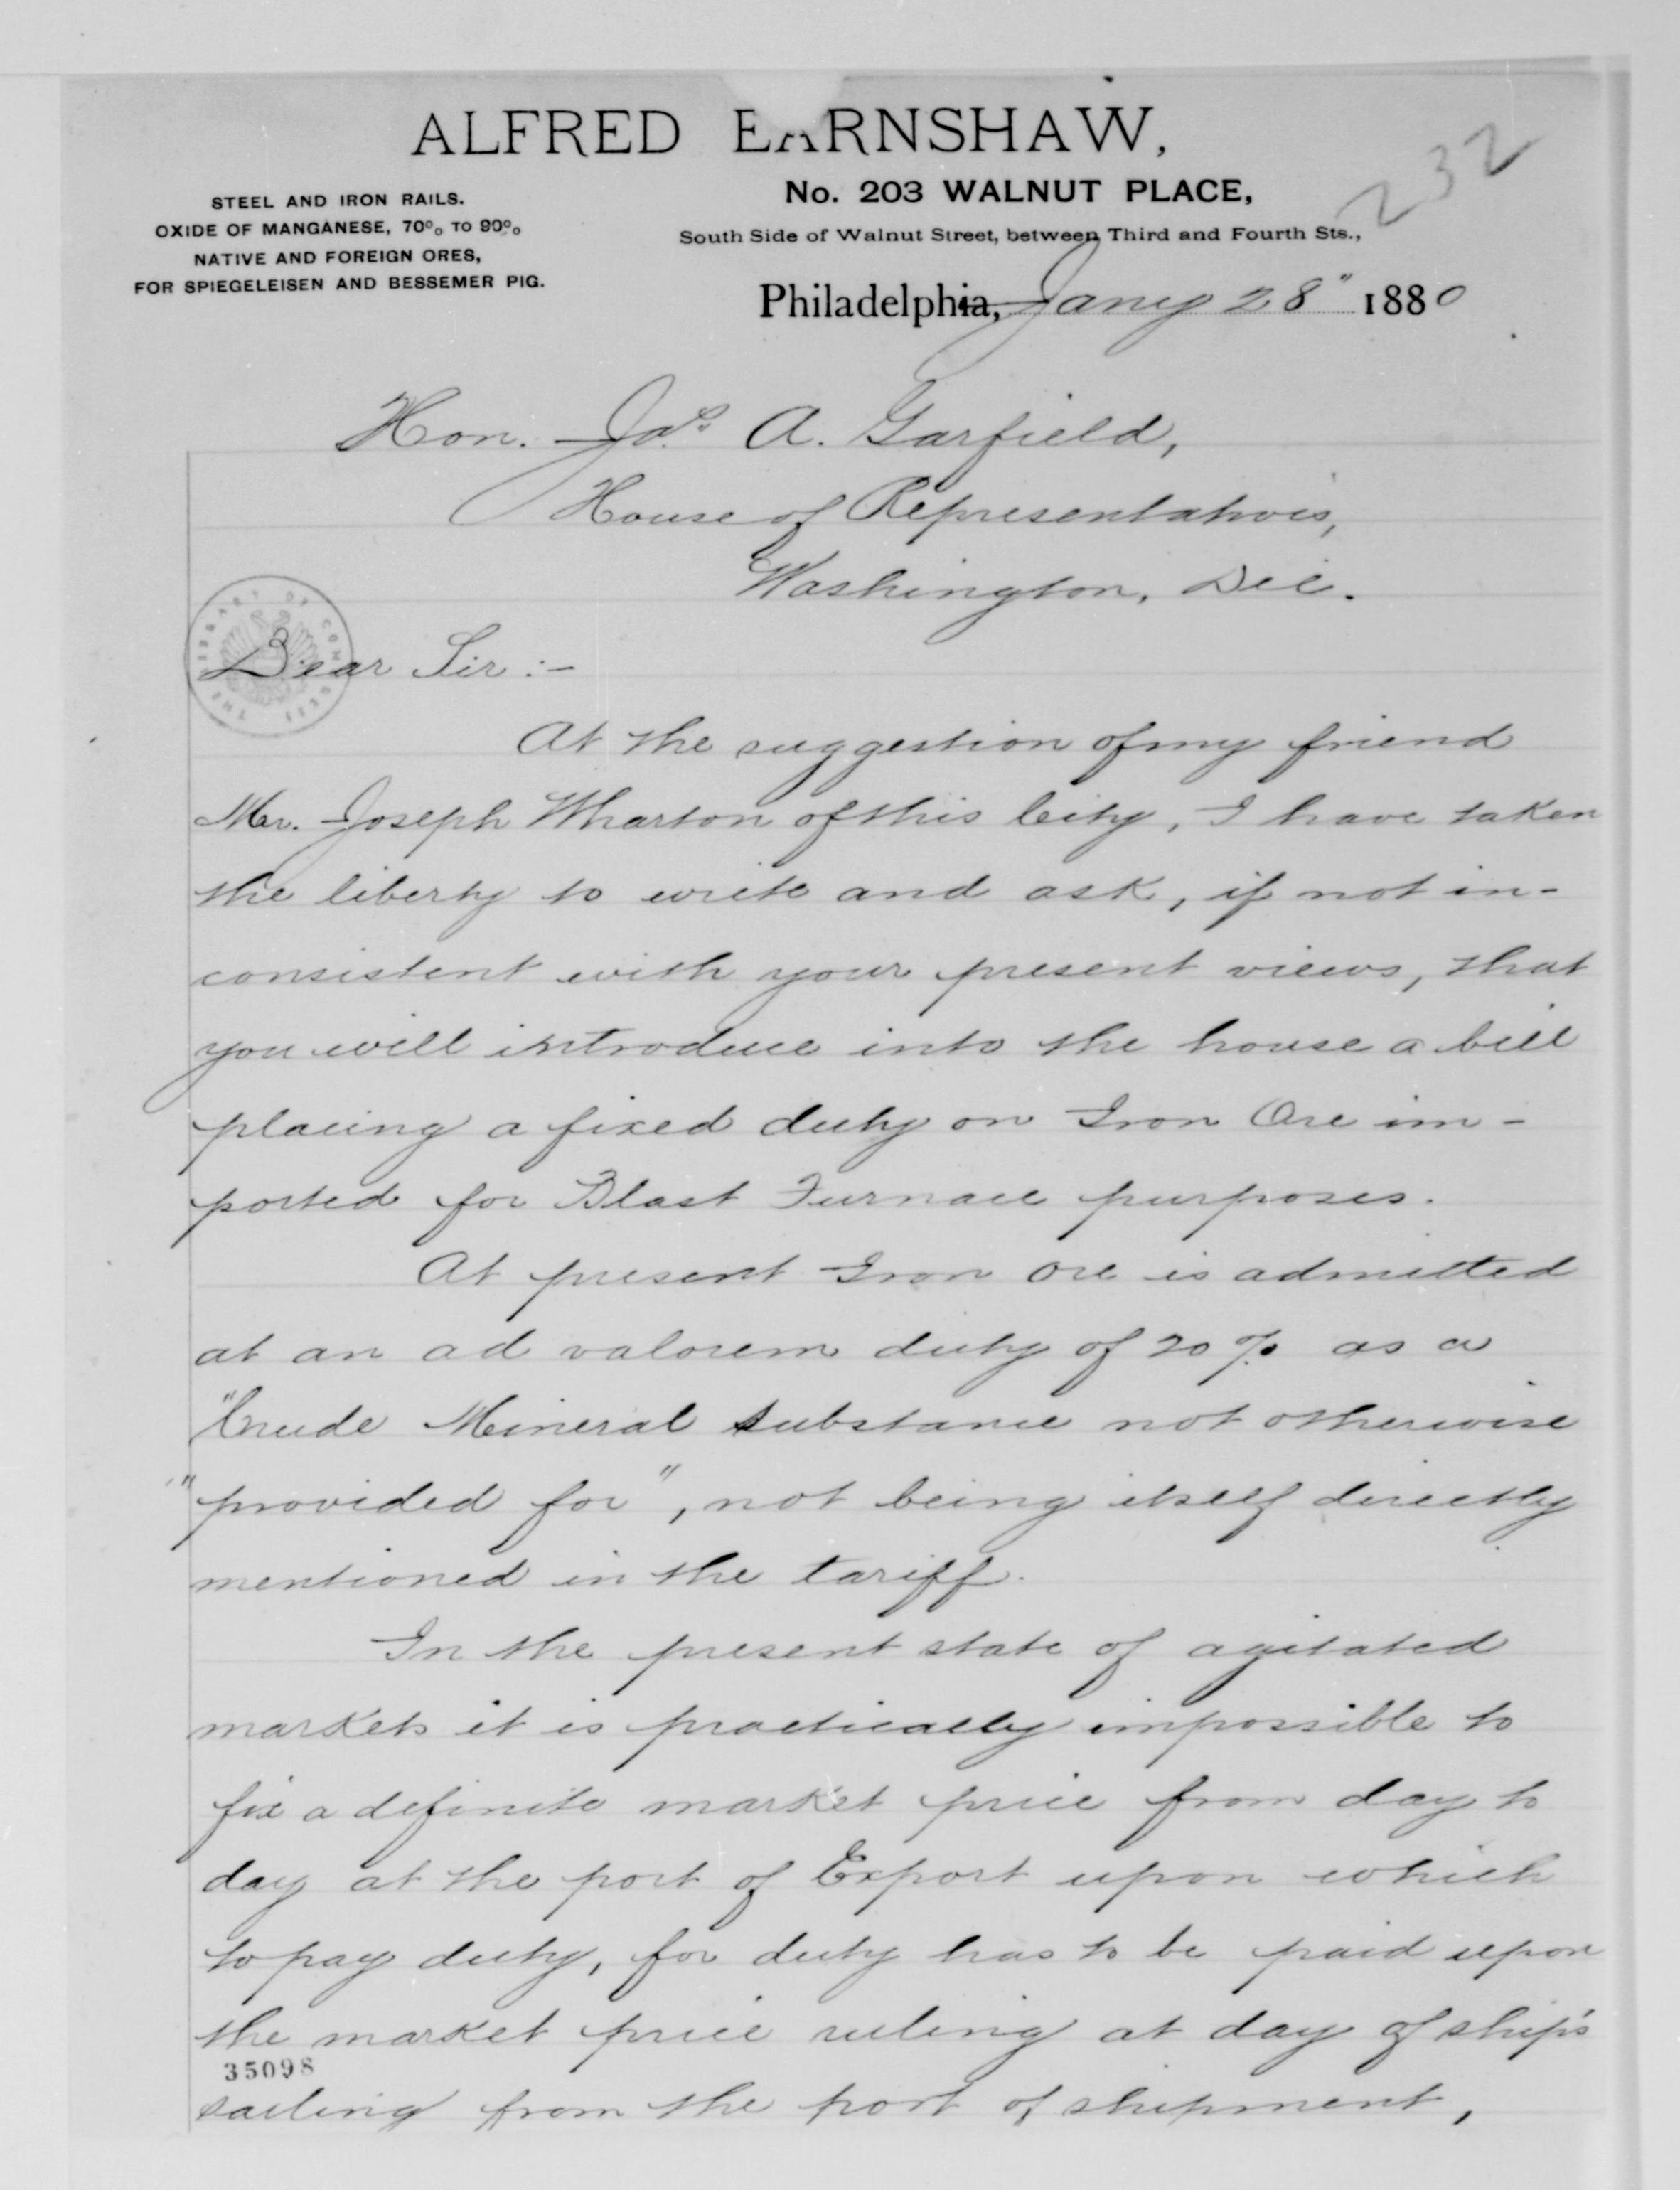 232
ALFRED EARNSHAW,
STEEL AND IRON RAILS.
OXIDE OF MANGANESE, 70% TO 90%
NATIVE AND FOREIGN ORES,
FOR SPIEGELEISEN AND BESSEMER PIG.
No. 203 WALNUT PLACE,
South Side of Walnut Street, between Third and Fourth Sts.,
Philadelphia, Jany 28" 1880
Hon. Jas. A. Garfield,
House of Representatives,
Washington, D.C.
THE LIBRARY OF CONGRESS
Dear Sir :-
At the suggestion of my friend
Mr. Joseph Wharton of this City, I have taken
the liberty to write and ask, if not in-
consistent with your present views, that
you will introduce into the house a bill
placing a fixed duty on Iron Ore im-
ported for Blast Furnace purposes.
At present Iron Ore is admitted
at an ad valorem duty of 20% as a
"Crude Mineral Substance not otherwise
"provided for", not being itself directly
mentioned in the tariff.
In the present state of agitated
markets it is practically impossible to
fix a definite market price from day to
day at the port of Export upon which
to pay duty, for duty has to be paid upon
the market price ruling at day of ship's
35098
sailing from the port of shipment,